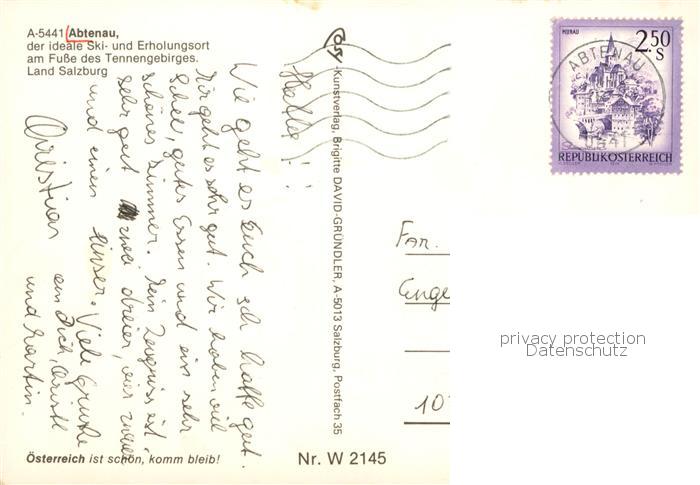 A-5441 Abtenau,
der ideale Ski- und Erholungsort
am Fuße des Tennengebirges.
Land Salzburg
Hallo!
Wie geht es Euch ich hoffe gut.
Mir geht es sehr gut. Wir haben viel
Schnee, gutes Essen und ein sehr
schönes Zimmer. Mein Zeugniss ist
sehr gut zwei dreier, vier zweier
und einen einser. Viele Grüße
Christian
an Dich, Christl
und Martin.
Österreich ist schön, komm bleib!
Cosy
Kunstverlag, Brigitte DAVID-GRÜNDLER, A-5013 Salzburg, Postfach 35
Nr. W 2145
MURAU
2.50
S
REPUBLIK ÖSTERREICH
ABTENAU
5441
FAM.
Enge
10
privacy protection
Datenschutz